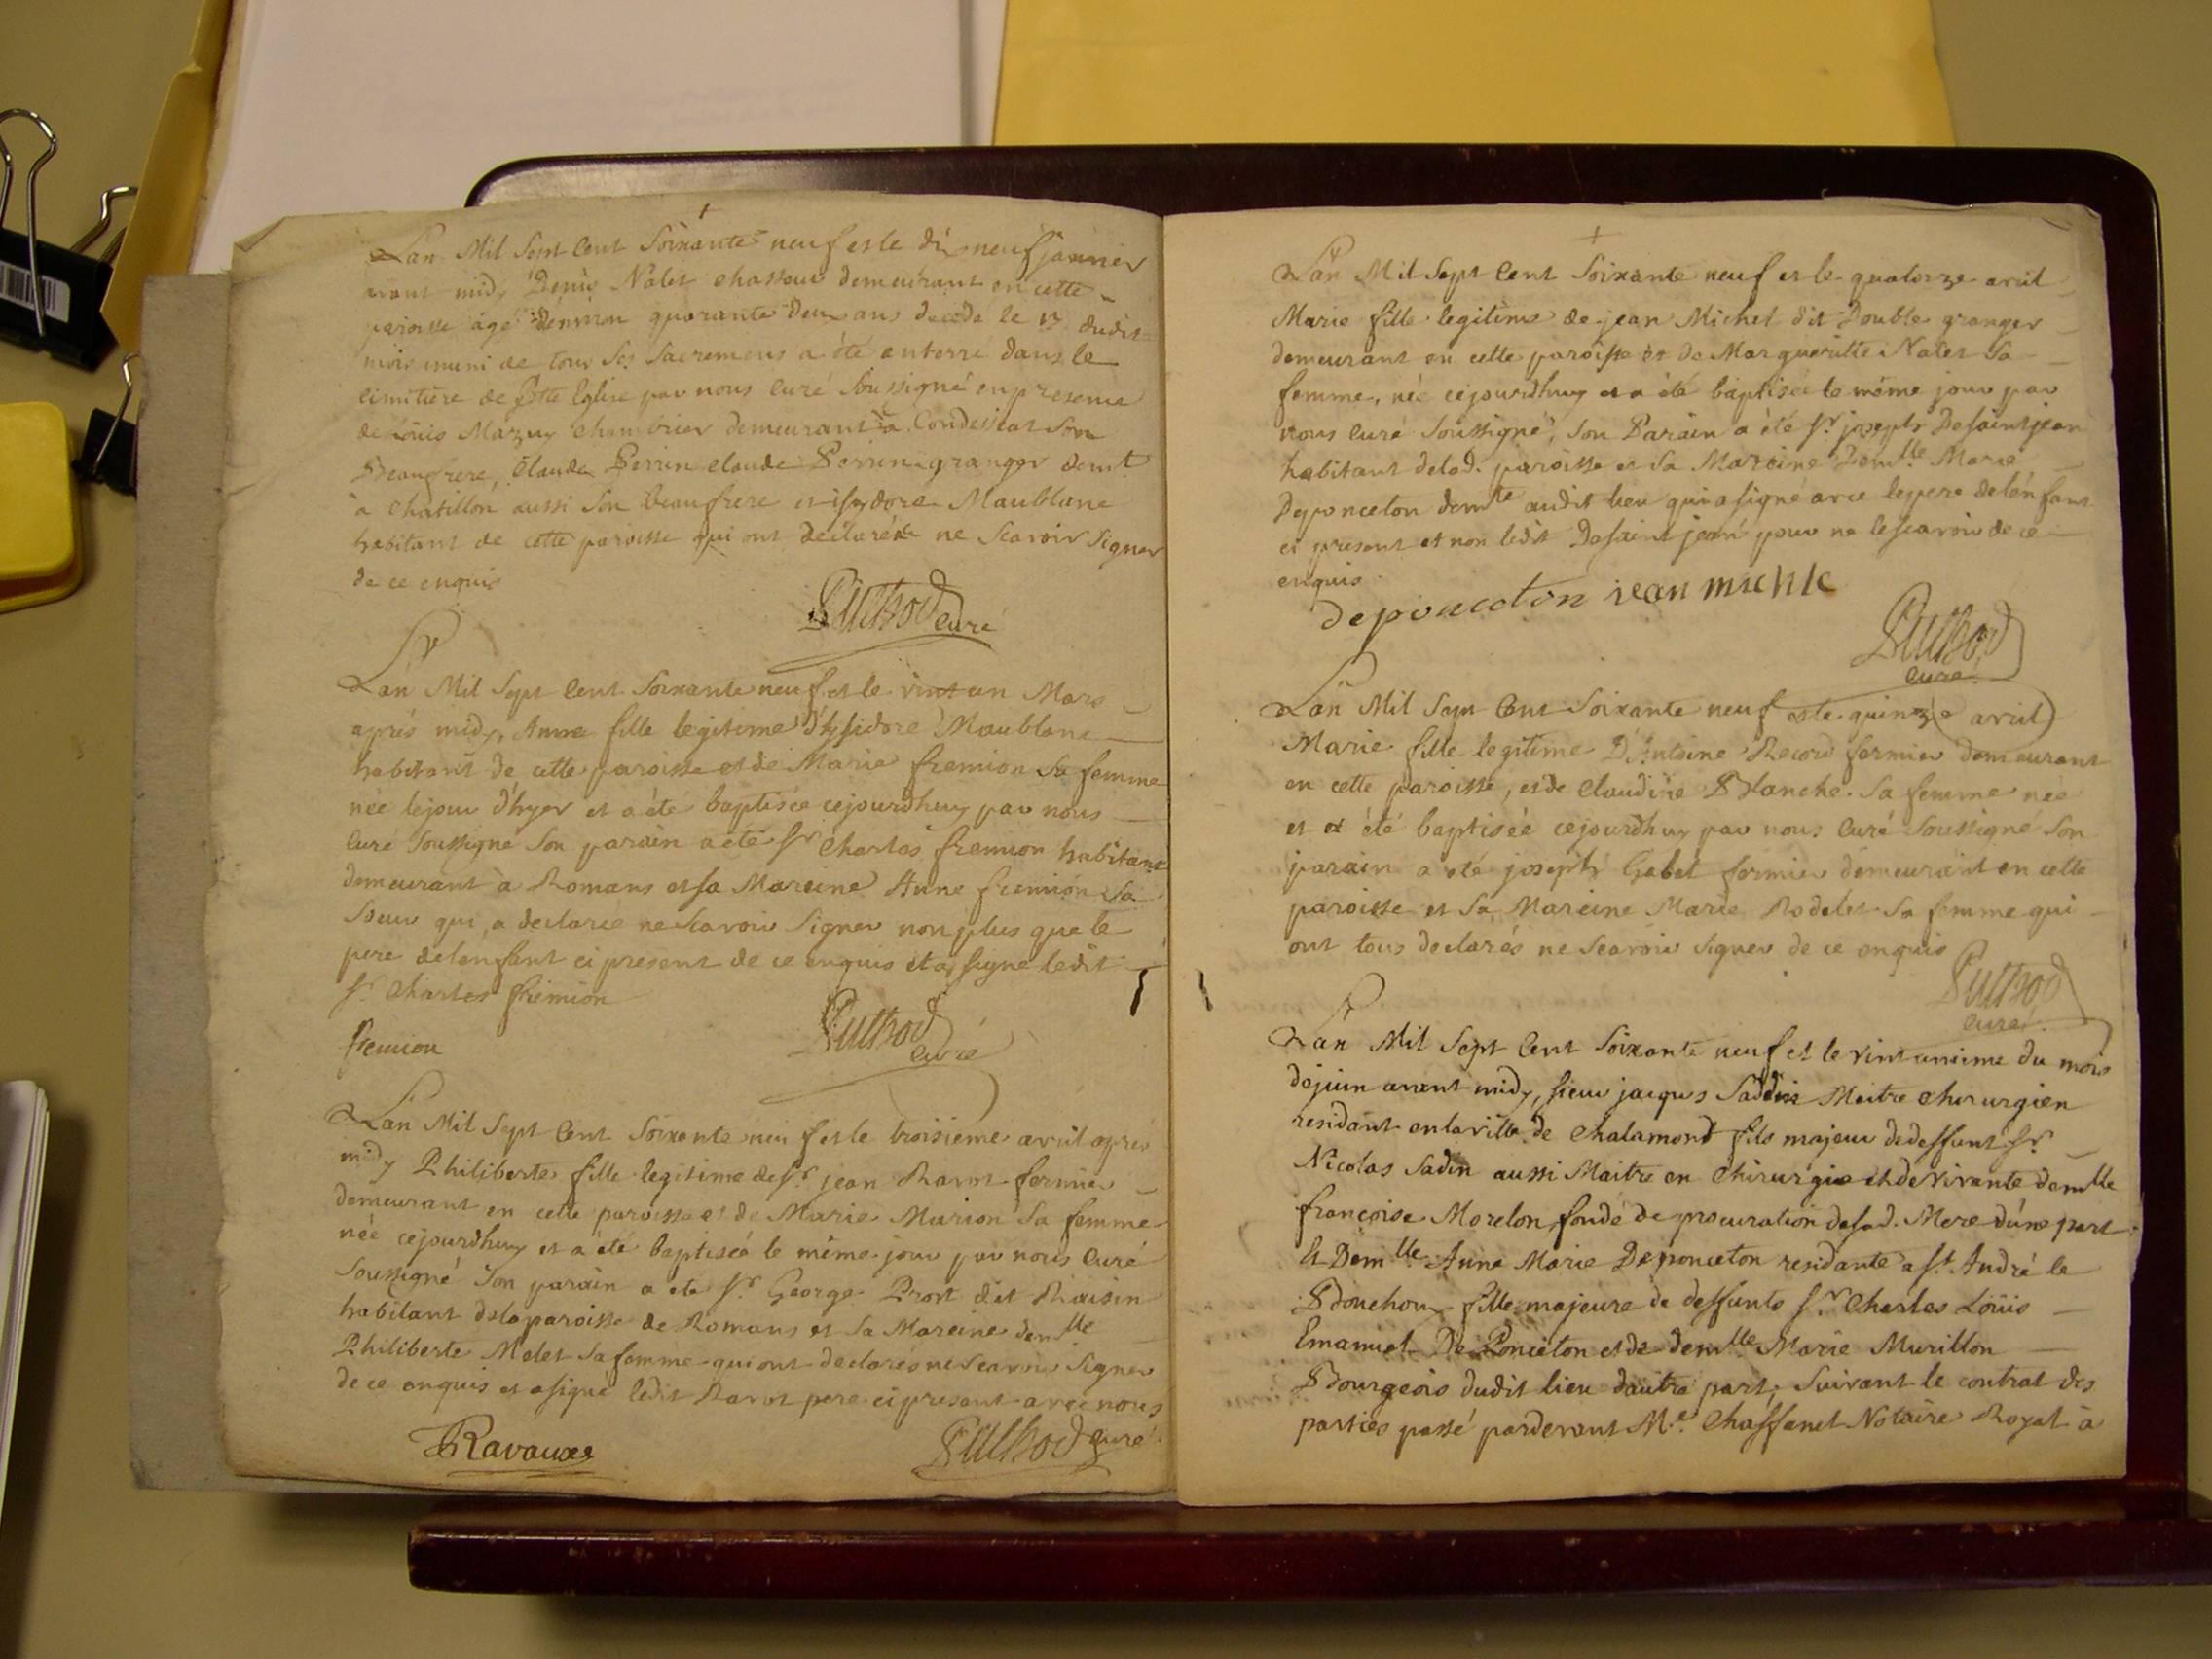 Lan Mil Sept Cent Soixante neuf et le dix neuf janvier
avant midy Denis Nalet chasseur demeurant en cette
paroisse âgé denviron quarante deux ans decedé le 17 dudit
mois muni de tous Ses Sacremens a été enterré dans le
cimitiere de cette Eglise par nous Curé Soussigné en presence
de Loüis Mazuy Chambrier demeurant à Condeissiat Son
Beaufrere, Claude Perrin Claude Perrin granger demt
à Chatillon aussi Son beaufrere et isydore Maublanc
habitant de cette paroisse qui ont declarés ne Scavoir Signer
de ce enquis
Puthod Curé
Lan Mil Sept Cent Soixante neuf et le vint un Mars
aprés midy, Anne fille legitime d'Issidore Maublanc
habitant de cette paroisse et de Marie fremion Sa femme
née lejour d'hyer et a été baptisée cejourdhuy par nous
Curé Soussigné Son parain a été Sr Charles fremion habitant
demeurant à Romans et sa Mareine Anne fremion Sa
Soeur qui a declaree ne Scavoir Signer non plus que le
pere delenfant ci present de ce enquis et a signe ledit
Sr. Charles fremion
fremion
Puthod Curé
Lan Mil Sept Cent Soixante neuf et le troisieme avril aprés
midy Philiberte fille legitime de Sr. jean Ravot fermier
demeurant en cette paroisse et de Marie Murion Sa femme
née cejourdhuy et a été baptiseé le même jour par nous Curé
Soussigné Son parain a ete Sr. George Prost dit Raisin
habitant delaparoisse de Romans et Sa Mareine demlle
Philiberte Melet Safemme qui ont declarés ne Scavoir Signer
de ce enquis et a signé ledit Ravot pere ci present avec nous
Puthod Curé
Lan Mil Sept Cent Soixante neuf et le quatorze avril
Marie fille legitime de jean Michel dit Double granger
demeurant en cette paroisse et de Margueritte Nalet Sa
femme, née cejourdhuy et a été baptisée le même jour par
nous Curé Soussigné, Son Parain a été Sr. joseph Desaintjean
habitant delad. paroisse et Sa Mareine Demlle Marie
Deponceton demte audit lieu qui a signé avec lepere delénfant
ci present et non ledit Desaint jean pour ne lescavoir de ce
enquis
deponceton jean michle
Puthod
Curé
Lan Mil Sept Cent Soixante neuf et le quinze avril
Marie fille legitime D'Antoine Record fermier demeurant
en cette paroisse, et de Claudine Blanche Sa femme née
et a été baptisée cejourdhuy par nous Curé Soussigné Son
parain a eté joseph Gabet fermier demeurant en cette
paroisse et Sa Mareine Marie Rodelet Sa femme qui
ont tous declarés ne Scavoir Signer de ce enquis
Puthod
Curé
Lan Mil Sept Cent Soixante neuf et le vint unieme du mois
dejuin avant midy, Sieur jacques Saddin Maitre Chirurgien
residant enlaville de Chalamont fils majeur dedeffunt Sr
Nicolas Sadin aussi Maitre en Chirurgie et de vivante demlle
françoise Morelon, fondé de procuration desad. Mere dúne part
Et Demlle Anne Marie Deponceton residante a St. André le
Bouchoux fille majeure de deffunts Sr. Charles Loüis
Emanuel De Ponceton et de demlle Marie Murillon
Bourgeois dudit lieu d'autre part, Suivant le contrat des
parties passé pardevant Me. Chaffanel Notaire Royal à